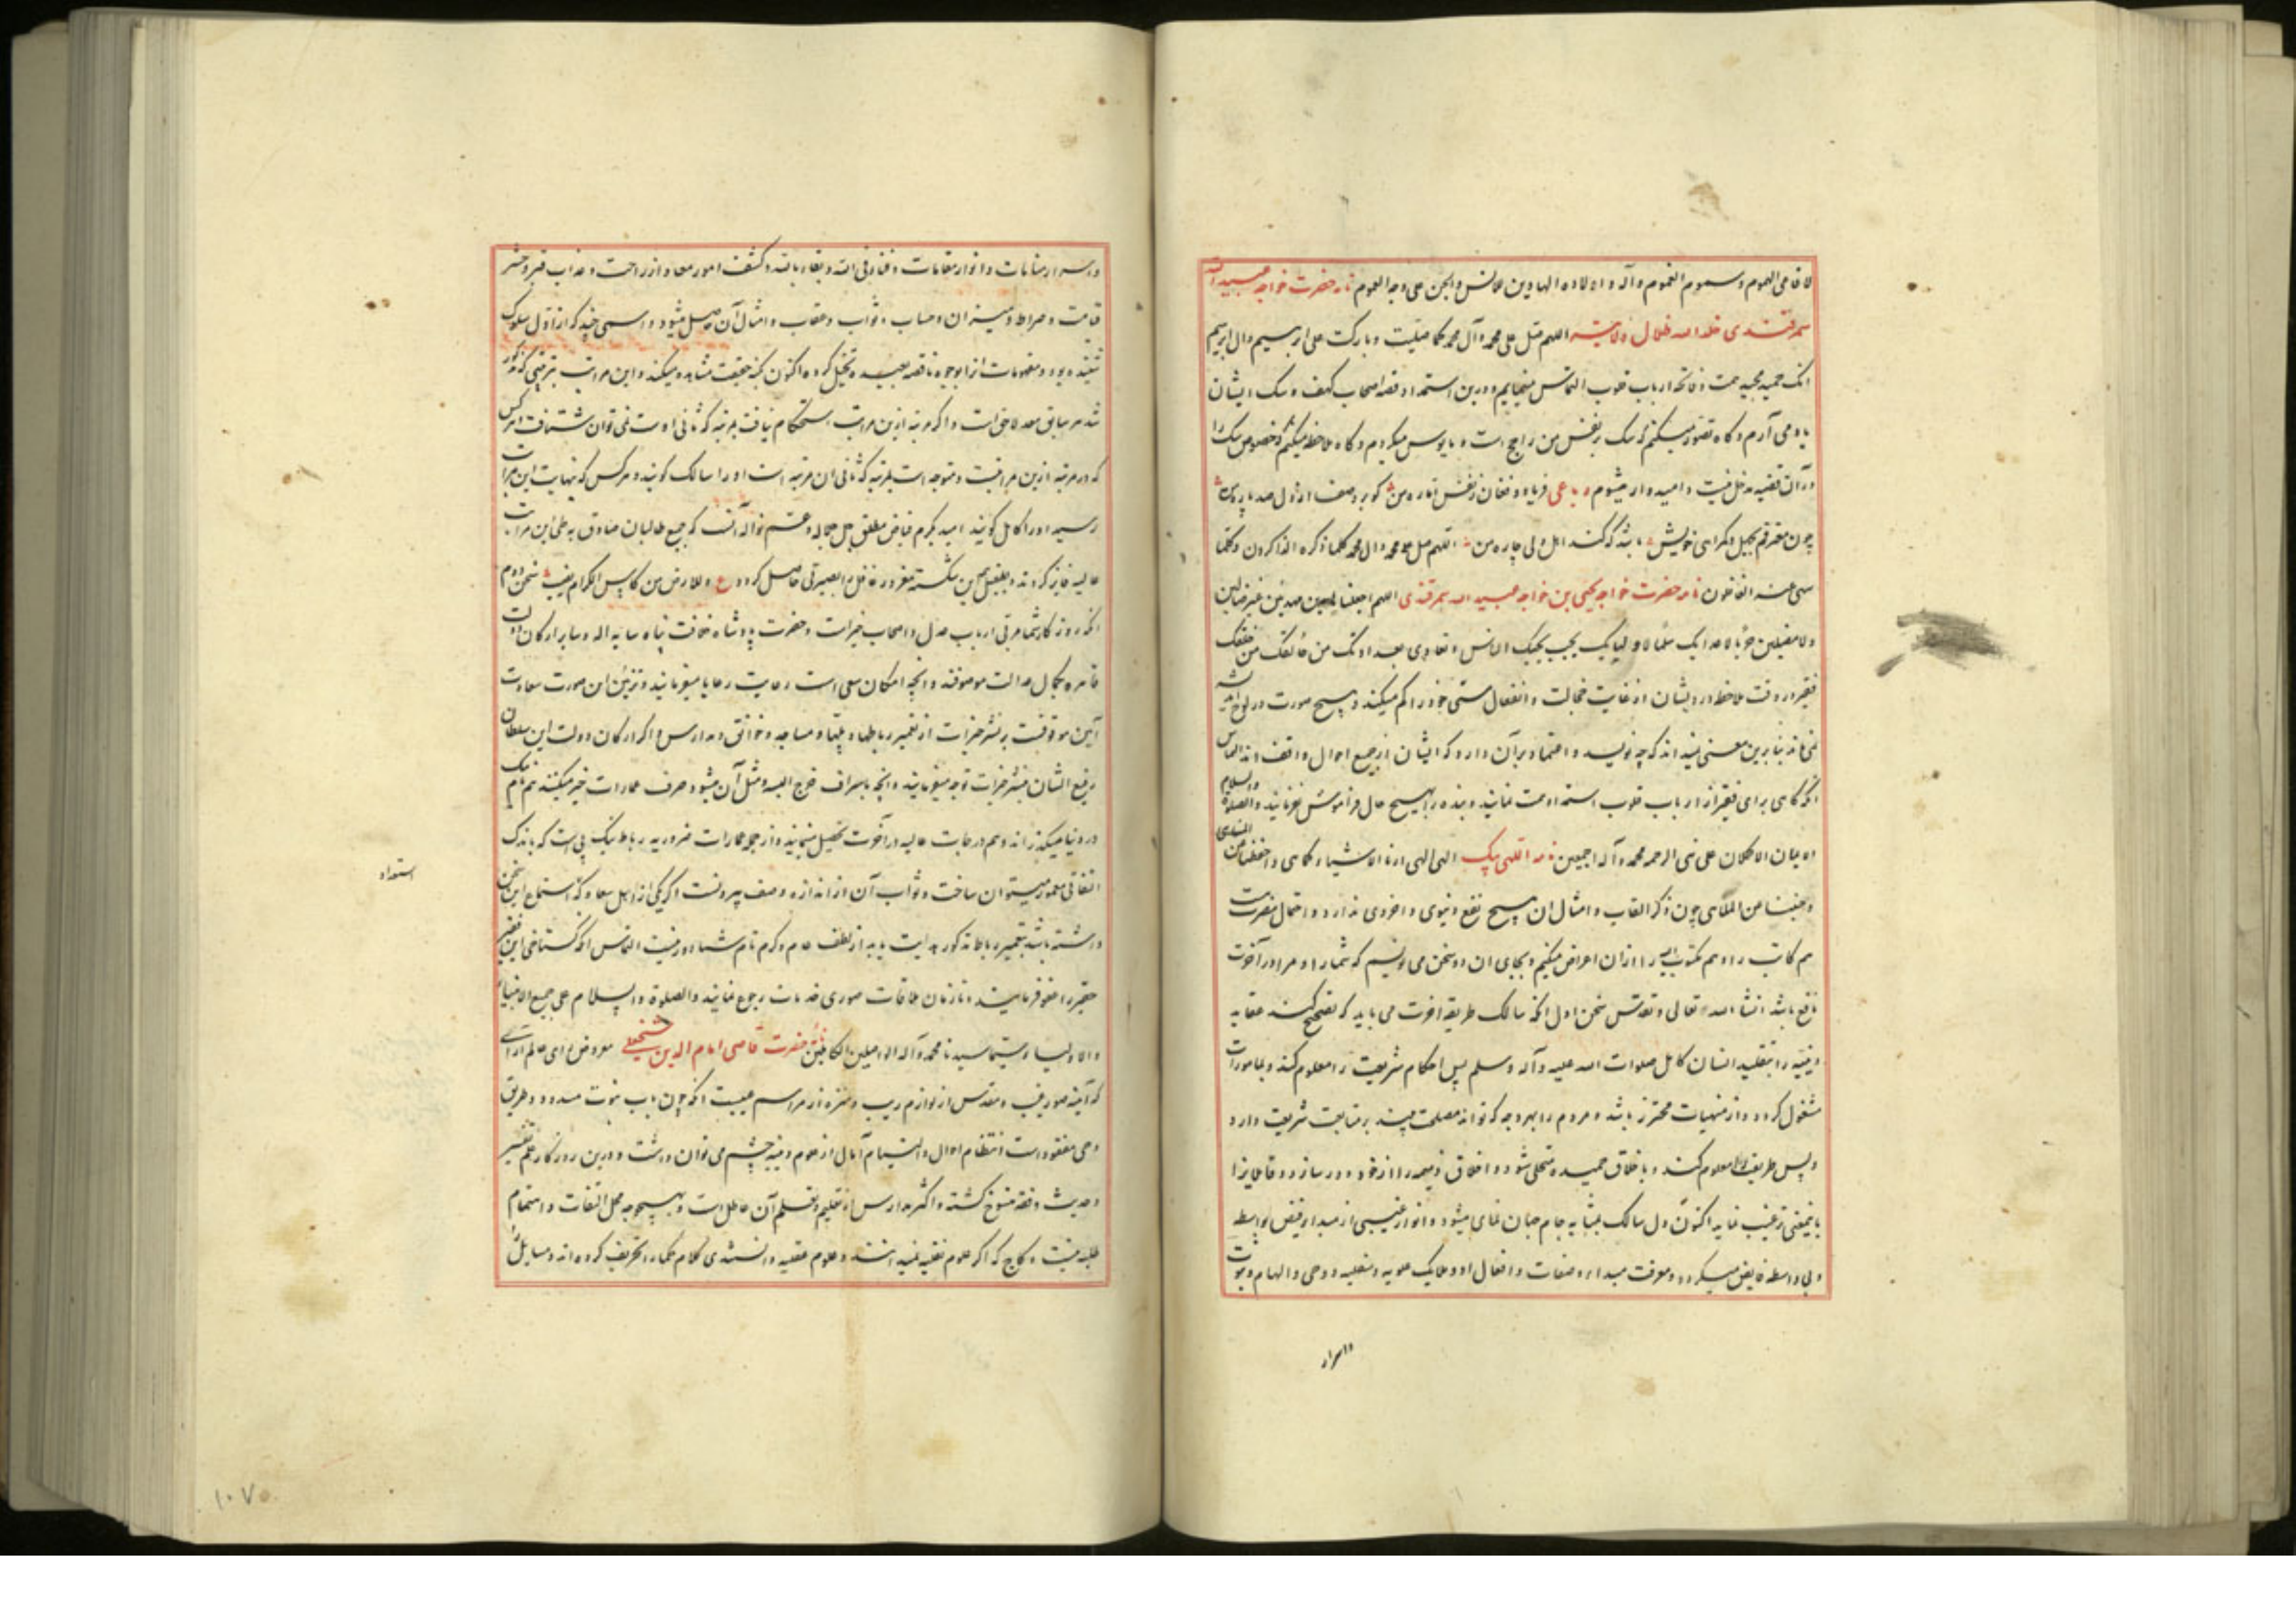 لافاعی الهموم وسموم الغموم وآله و اولاده الهادین للانس والجن علی وجه العموم نامه حضرت خواجه عبیدالله
سمرقندی خلد الله ظلال ولایته اللهم صل علی محمد وآل محمد کما صلیت وبارکت علی ابرهیم وال ابرهیم
انک حمید مجید همت و فاتحه ارباب قلوب التماس مینمایم و درین استمداد قصه اصحاب کهف و سک ایشان
یاد می آرم و کاه تصور میکنم که سک بر نفس من راجح است و مایوس میکردم و کاه ملاحظه میکنم که خصوص سک را
درآن قضیه مدخل نیست و امیدوار میشوم رباعی فریاد و فغان ز نفس اماره من کو برد صف
چون معترفم بجهل و کمراهی خویش باشد که کنند اهل دلی چاره من اللهم صل علی محمد وال محمد کلما ذکره الذاکرون وکلما
سهی عنه الغافلون نامه حضرت خواجه یحیی بن خواجه عبید الله سمرقندی اللهم اجعلنا هادین مهدیین غیر ضالین
ولا مضلین حربا لاعدایک سلما لاولیایک نحب بحبک الناس و نعادی بعداوتک من خالفک من خلقک
فقیر در وقت ملاحظه درویشان از غایت خجالت و انفعال هستی خود را کم میکند و هیچ صورت در لوح اندیشه
نمی ماند بنابرین معنی نمیداند که چه نویسد و اعتماد برآن دارد که ایشان از جمیع احوال واقف اند التماس
انکه کاهی برای فقیر از ارباب قلوب استمداد همت نمایند و بنده را بهیچ حال فراموش نفرمایند والصلوة والسلام
الاعیان الاکملان علی نبی الرحمه محمد و آله اجمعین نامه اللهی الهی ارنا الاشیاء کماهی واحفظنا من المناهی
و جنبنا من الملاهی چون ذکر القاب و امثال ان هیچ نفع دنیوی و اخروی ندارد و احتمال مضرت
هم کاتب را و هم مکتوب الیه را از ان اعراض میکنیم و بجای ان دو سخن می نویسم که شما را و مرا در آخرت
نافع باشد انشاء الله تعالی و تقدس سخن اول انکه سالک طریقه اخرت می باید که تصحیح کند عقاید
دینیه را بتقلید انسان کامل صلوات الله علیه وآله وسلم پس احکام شریعت را معلوم کند و بمامورات
مشغول کردد و از منهیات محترز باشد و مردم را بهر وجه که تواند مصلحت بیند بر متابعت شریعت دارد
و پس طریقت را معلوم کند و باخلاق حمیده متحلی شود و اخلاق ذمیمه را از خود دور سازد و قابلان را
باینمعنی ترغیب نماید اکنون دل سالک بمثابه جام جهان نمای میشود و انوار غیبی از مبداء فیض بواسطه
و بی واسطه فایض میکردد و معرفت مبداء و صفات و افعال او و ملایک علویه و سفلیه و وحی و الهام و نبوت
واسرار
واسرار منامات و انوار مقامات و فناء فی الله و بقاء بالله و کشف امور معاد از راحت و عذاب قبر و حشر
قیامت و صراط و میزان و حساب و ثواب و عقاب و امثال آن حاصل میشود و اسمی چند که از اول سلوک
شنیده بود و مفهومات انرا بوجوه ناقصه بعیده تخیل کرده اکنون بکنه حقیقت مشاهده میکند و این مراتب بترتیبی که مذکور
شد هر سابق معد لاحق است و اکر مرتبه ازین مراتب استحکام نیافت بمرتبه که ثانی اوست نمی توان شتافت و هرکس
که در مرتبه ازین مراتبست و متوجه است بمرتبه که ثانی ان مرتبه است او را سالک کویند و هرکس که بنهایت این مراتب
رسید اورا کامل کویند امید بکرم فیاض مطلق جل جماله وعم نواله آنست که جمیع طالبان صادق به طی این مراتب
عالیه فایز کردند و بطفیل این شکسته مغرور غافل را بصیرتی حاصل کردد ع وللارض من کاس الکرام نصیب سخن دوم
انکه روزکار شما مربی ارباب عدل و اصحاب خیرات و حضرت پادشاه خلافت پناه سایه اله و سایر ارکان دولت
قاهره بکمال عدالت موصوفند و انچه امکان سعی است رعایت رعایا میفرمایند و تزیین این صورت سعادت
آیین موقوفست بر نشر خیرات از تعمیر رباطها و پلها و مساجد و خوانق و مدارس و اکر ارکان دولت این سلطان
رفیع الشان بنشر خیرات توجه میفرمایند و انچه باسراف خرج البسه و مثل آن میشود صرف عمارات خیر میکنند هم نام نیک
در دنیا میکذرانند و هم درجات عالیه در آخرت تحصیل مینمایند و از جمله عمارات ضروریه رباط نیک پی است که باندک
التفاتی معمور میتوان ساخت و ثواب آن از اندازه وصف بیرونست اکر یکی از اهل سعادت که استماع این سخن
داشته باشد بتعمیر رباط مذکور هدایت یابد از لطف عام و کرم تام شما دور نیست التماس انکه کستاخی این فقیر
حقیر را عفو فرمایند و تا زمان ملاقات صوری خدمات رجوع نمایند والصلوة والسلام علی جمیع الانبیاء
والاولیاء وسیما سیدنا محمد وآله الواصلین الکاملین نامه حضرت قاضی امام الدین شیخعلی معروض رای عالم ارای
که آینه صور غیب و مقدس از لوازم ریب و منزه از مراسم عیبست انکه چون باب نبوت مسدود و طریق
وحی مفقود است انتظام احوال و التیام آمال از علوم دینیه چشم می توان داشت و درین روزکار علم تفسیر
و حدیث و فقه منسوخ کشته و اکثر مدارس از تعلیم و تعلم آن عاطل است و بهیچ وجه محل التفات و اهتمام
طلبه نیست و کاج که اکر علوم نقلیه نمیدانستند و علوم عقلیه دانستندی کلام حکما را تحریف کرده اند و مسایل
استعداد
١٠٧